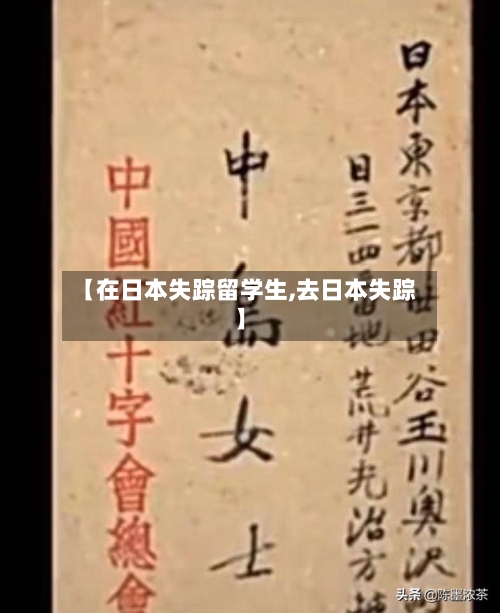 日本東京都世田谷玉川奥沢
日三一四番地 荒井治方
中島女士
中國紅十字會總會
【在日本失踪留学生,去日本失踪
】
头条 @陈墨浓茶